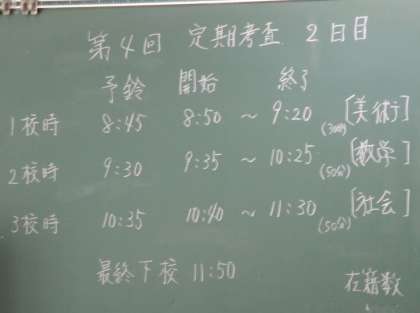 第4回 定期考査 2日目
予鈴 開始 終了
1校時 8:45 8:50 ~ 9:20 (30分) [美術]
2校時 9:30 9:35 ~ 10:25 (50分) [数学]
3校時 10:35 10:40 ~ 11:30 (50分) [社会]
最終下校 11:50
在籍数